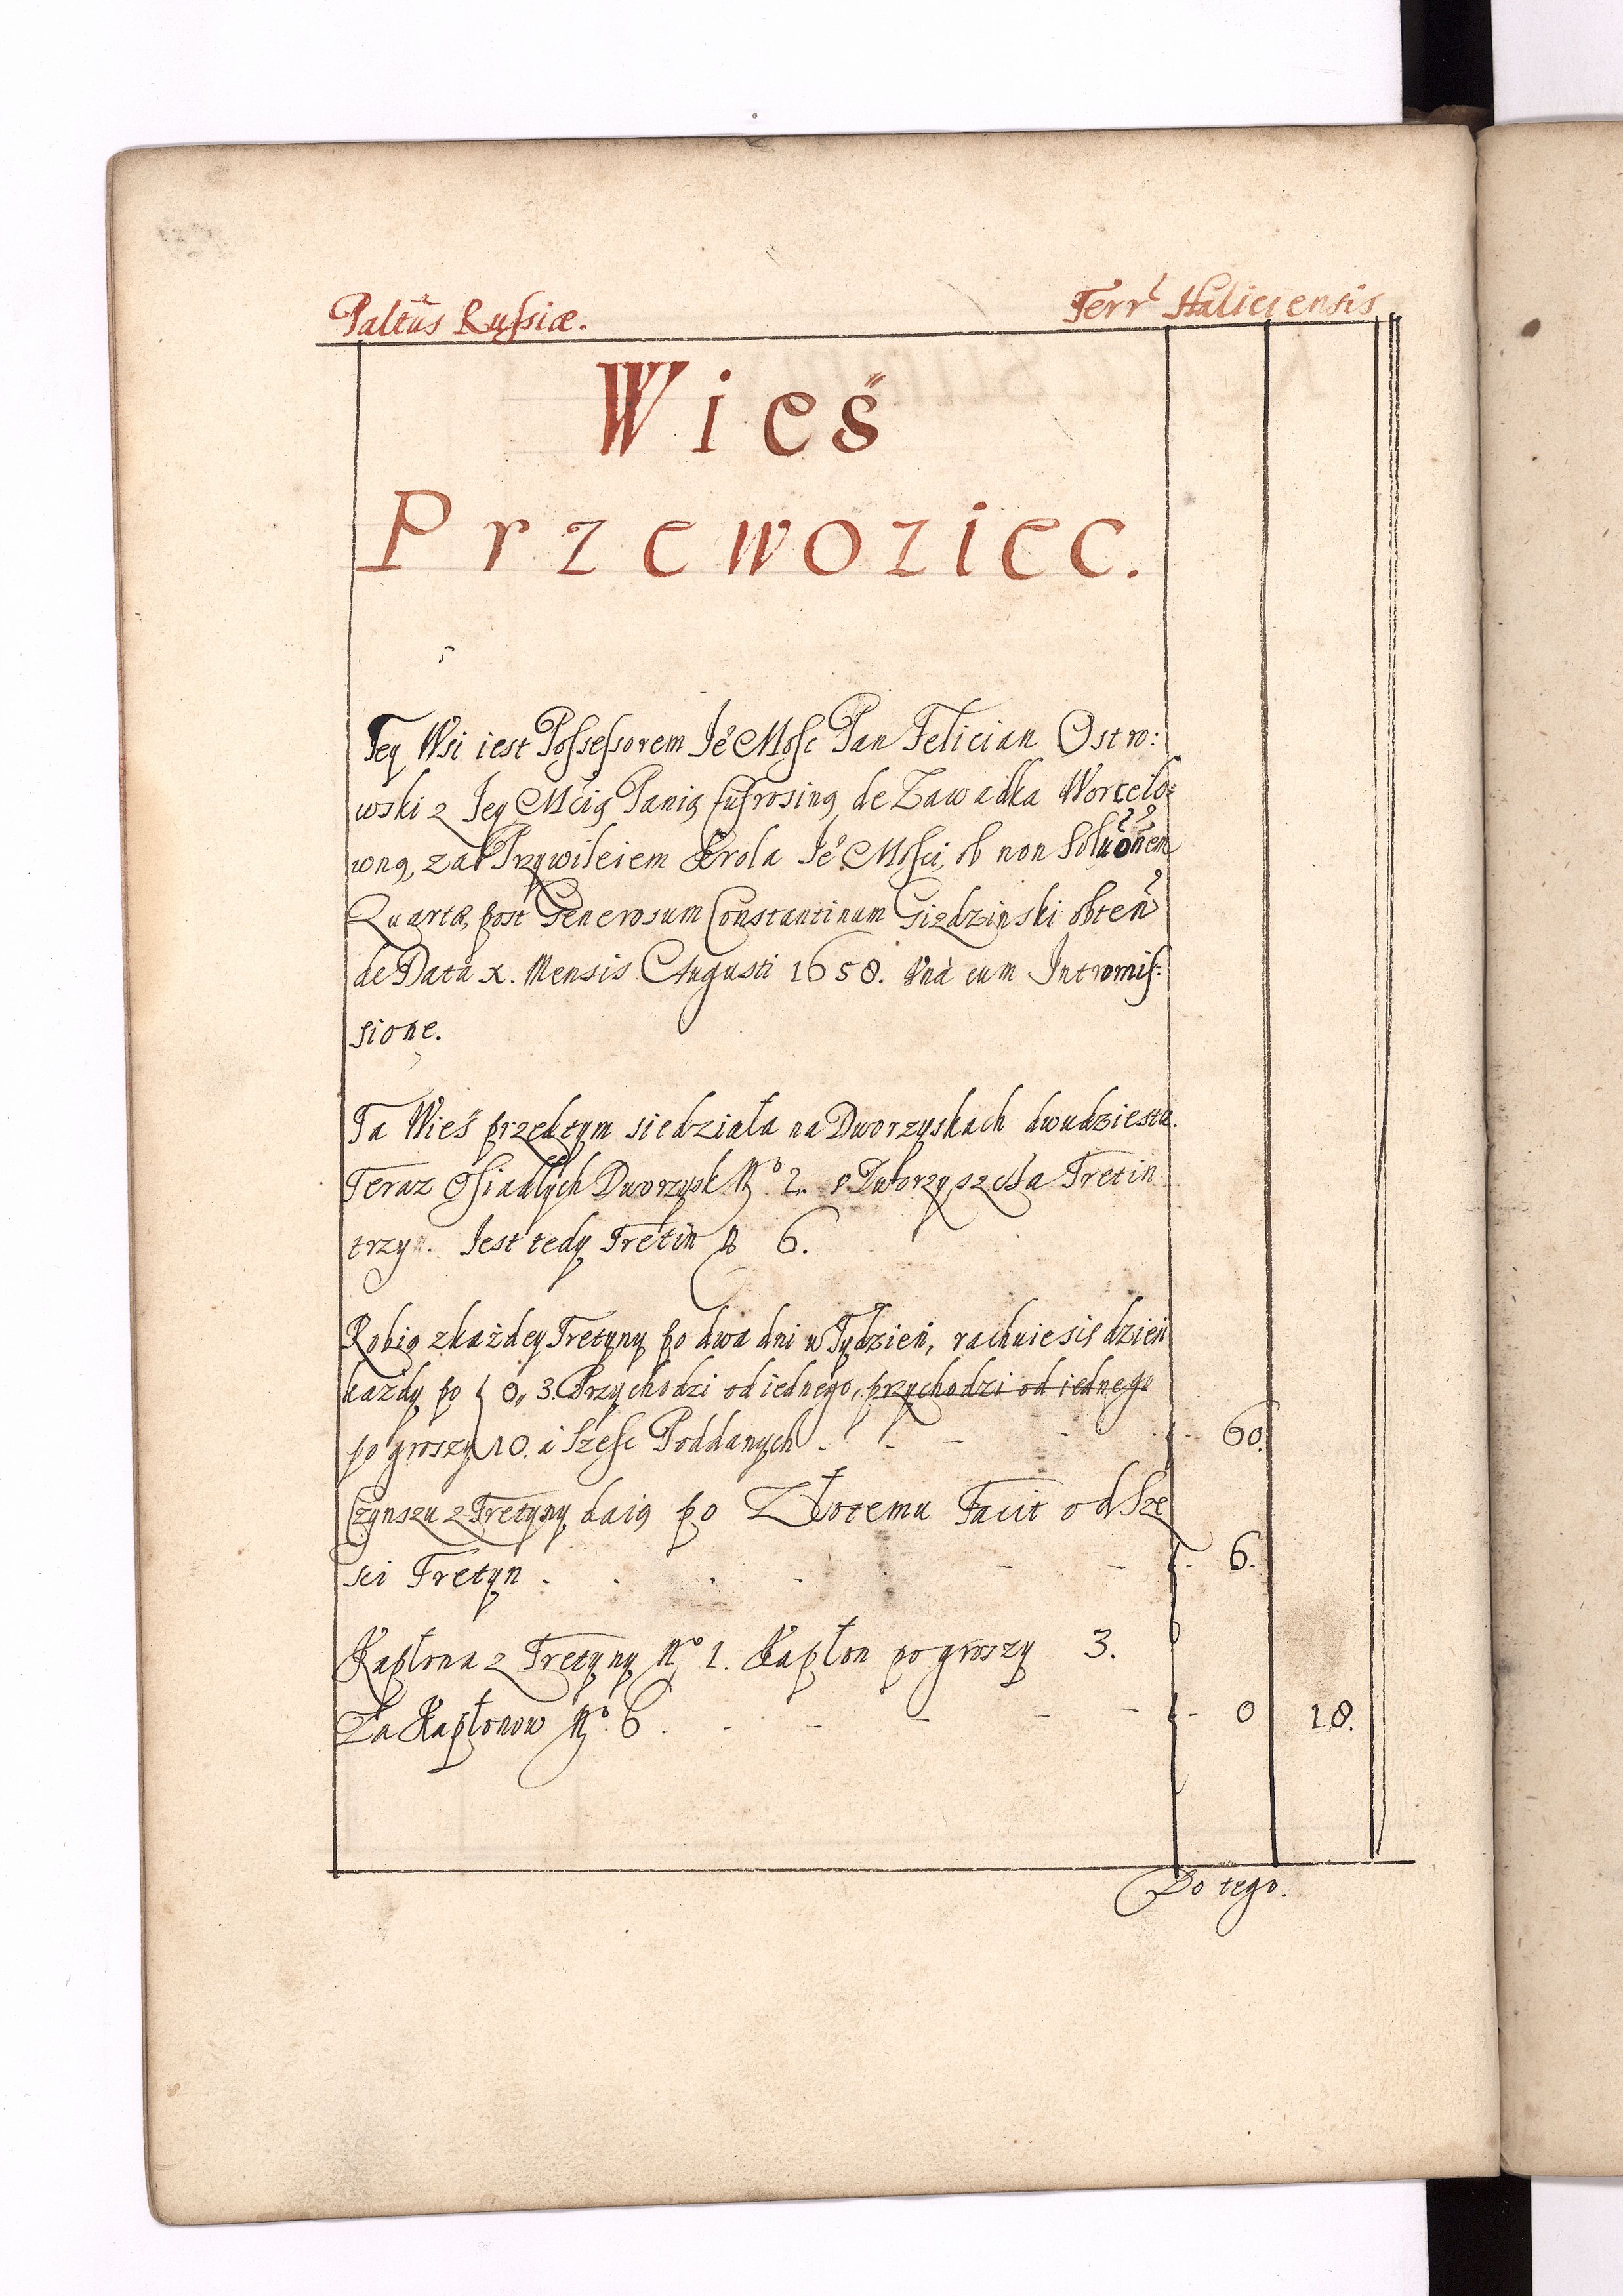 Paltũs Russiæ. Terr Haliciensis
Wieś
Przewoziec.
Tey Wsi iest Possessorem Jé Mosc Pan Felician Ostro:
wski z Jey Mcią Panią Eufrosiną de Zawadka Worcelo:
wną, za Przywileiem Krola Jé Mosci, ob non Soluõnem
Quartæ, post Generosum Constantinum Giedzinski obteñ
de Data x. Mensis Augusti 1658. Vnà cum Intromis:
sione.
Ta Wieś przedtym siedziała na Dworzyskach dwudziestu.
Teraz Osiadłych Dworzysk No 2. Tretin
trzy. Jest tedy Tretin No 6.
Robią zkażdey Tretyny po dwa dni w Tydzień, rachuie się dzień
każdy po f 0,, 3. Przychodzi od iednego, przychodzi od iednego
po groszy 10. a Szesc Poddanych - - - - f - 60.
Czynszu z Tretyny daią po Złotemu Facit od Sze
sci Tretyn - - - - f - 6.
Kapłona z Tretyny No 1. Kapłon po groszy 3.
Za Kapłonow No. 6. - - - - f - 0 18.
Do tego.